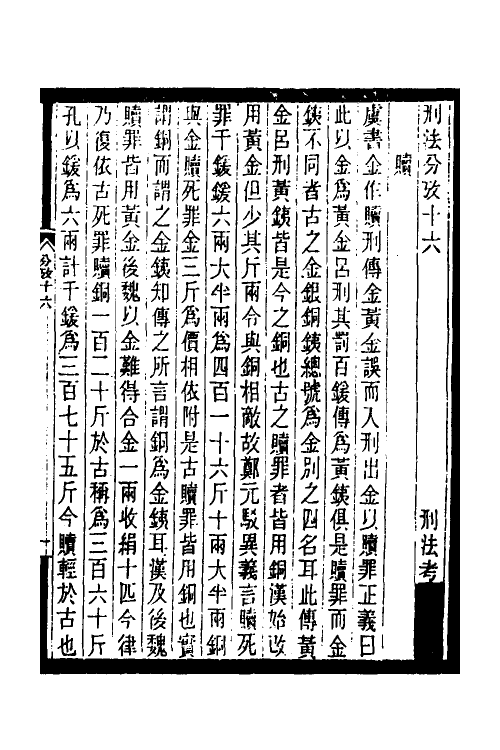 刑法分攷十六　刑法考
贖
虞書金作贖刑傳金黃金誤而入刑出金以贖罪正義曰
此以金爲黃金呂刑其罰百鍰傳爲黃鐵俱是贖罪而金
鐵不同者古之金銀銅鐵總號爲金別之四名耳此傳黃
金呂刑黃鐵皆是今之銅也古之贖罪者皆用銅漢始改
用黃金但少其斤兩令與銅相敵故鄭元駁異義言贖死
罪千鍰鍰六兩大半兩爲四百一十六斤十兩大半兩銅
與金贖死罪金三斤爲價相依附是古贖罪皆用銅也實
謂銅而謂之金鐵知傳之所言謂銅爲金鐵耳漢及後魏
贖罪皆用黃金後魏以金難得合金一兩收絹十匹今律
乃復依古死罪贖銅一百二十斤於古稱爲三百六十斤
孔以鍰爲六兩計千鍰爲三百七十五斤今贖輕於古也
分攷十六
一